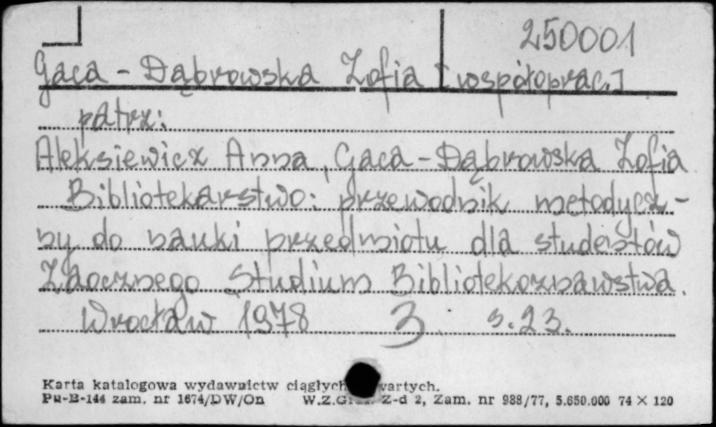 250001
Gaca - Dąbrowska Zofia [współoprac.]
patrz:
Aleksiewicz Anna, Gaca - Dąbrowska Zofia
Bibliotekarstwo: przewodnik metodycz-
ny do nauki przedmiotu dla studentów
Zaocznego Studium Bibliotekoznawstwa.
Wrocław 1978 3 s. 23.
Karta katalogowa wydawnictw ciągłych wartych.
Pu-B-144 zam. nr 1674/DW/On W.Z.Graf. Z-d 2, Zam. nr 988/77, 5.650.000 74 × 120